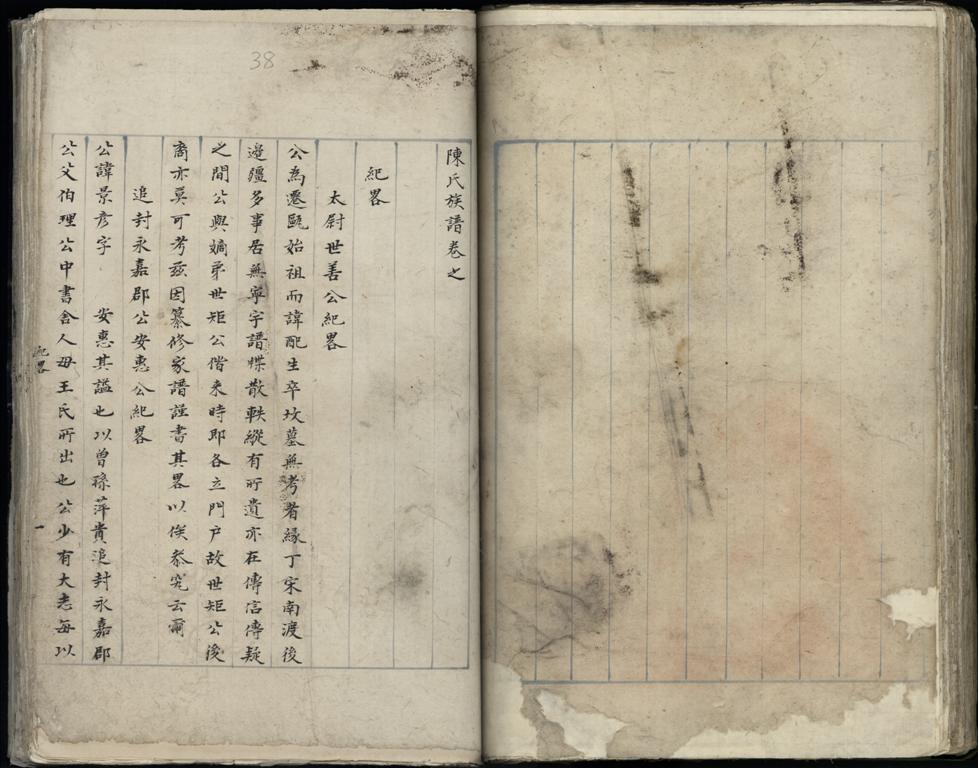 38
陳氏族譜卷之
紀畧
太尉世善公紀畧
公為遷甌始祖而諱配生卒坟墓無考者緣丁宋南渡後
邉疆多事居無寧宇譜牒散軼縱有所遺亦在傳信傳疑
之間公與嫡弟世矩公偕来時即各立門户故世矩公後
裔亦莫可考兹因纂修家譜謹書其畧以俟叅究云爾
追封永嘉郡公安惠公紀畧
公諱景彦字 安惠其謚也以曽孫萍貴追封永嘉郡
公父伯理公中書舍人毋王氏所出也公少有大志每以
紀畧
一